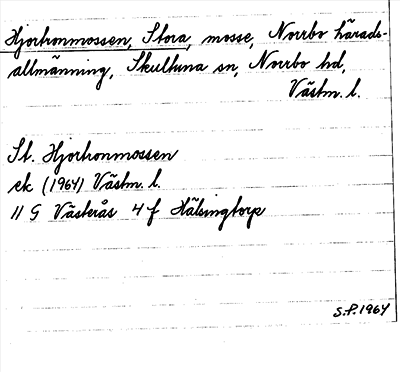 Hjortronmossen, Stora, mosse, Norrbo härads-
allmänning, Skultuna sn, Norrbo hd,
Västm. l.
St. Hjortronmossen
ek (1964) Västm. l.
11 G Västerås 4 f Hälsingtorp
S.P. 1964